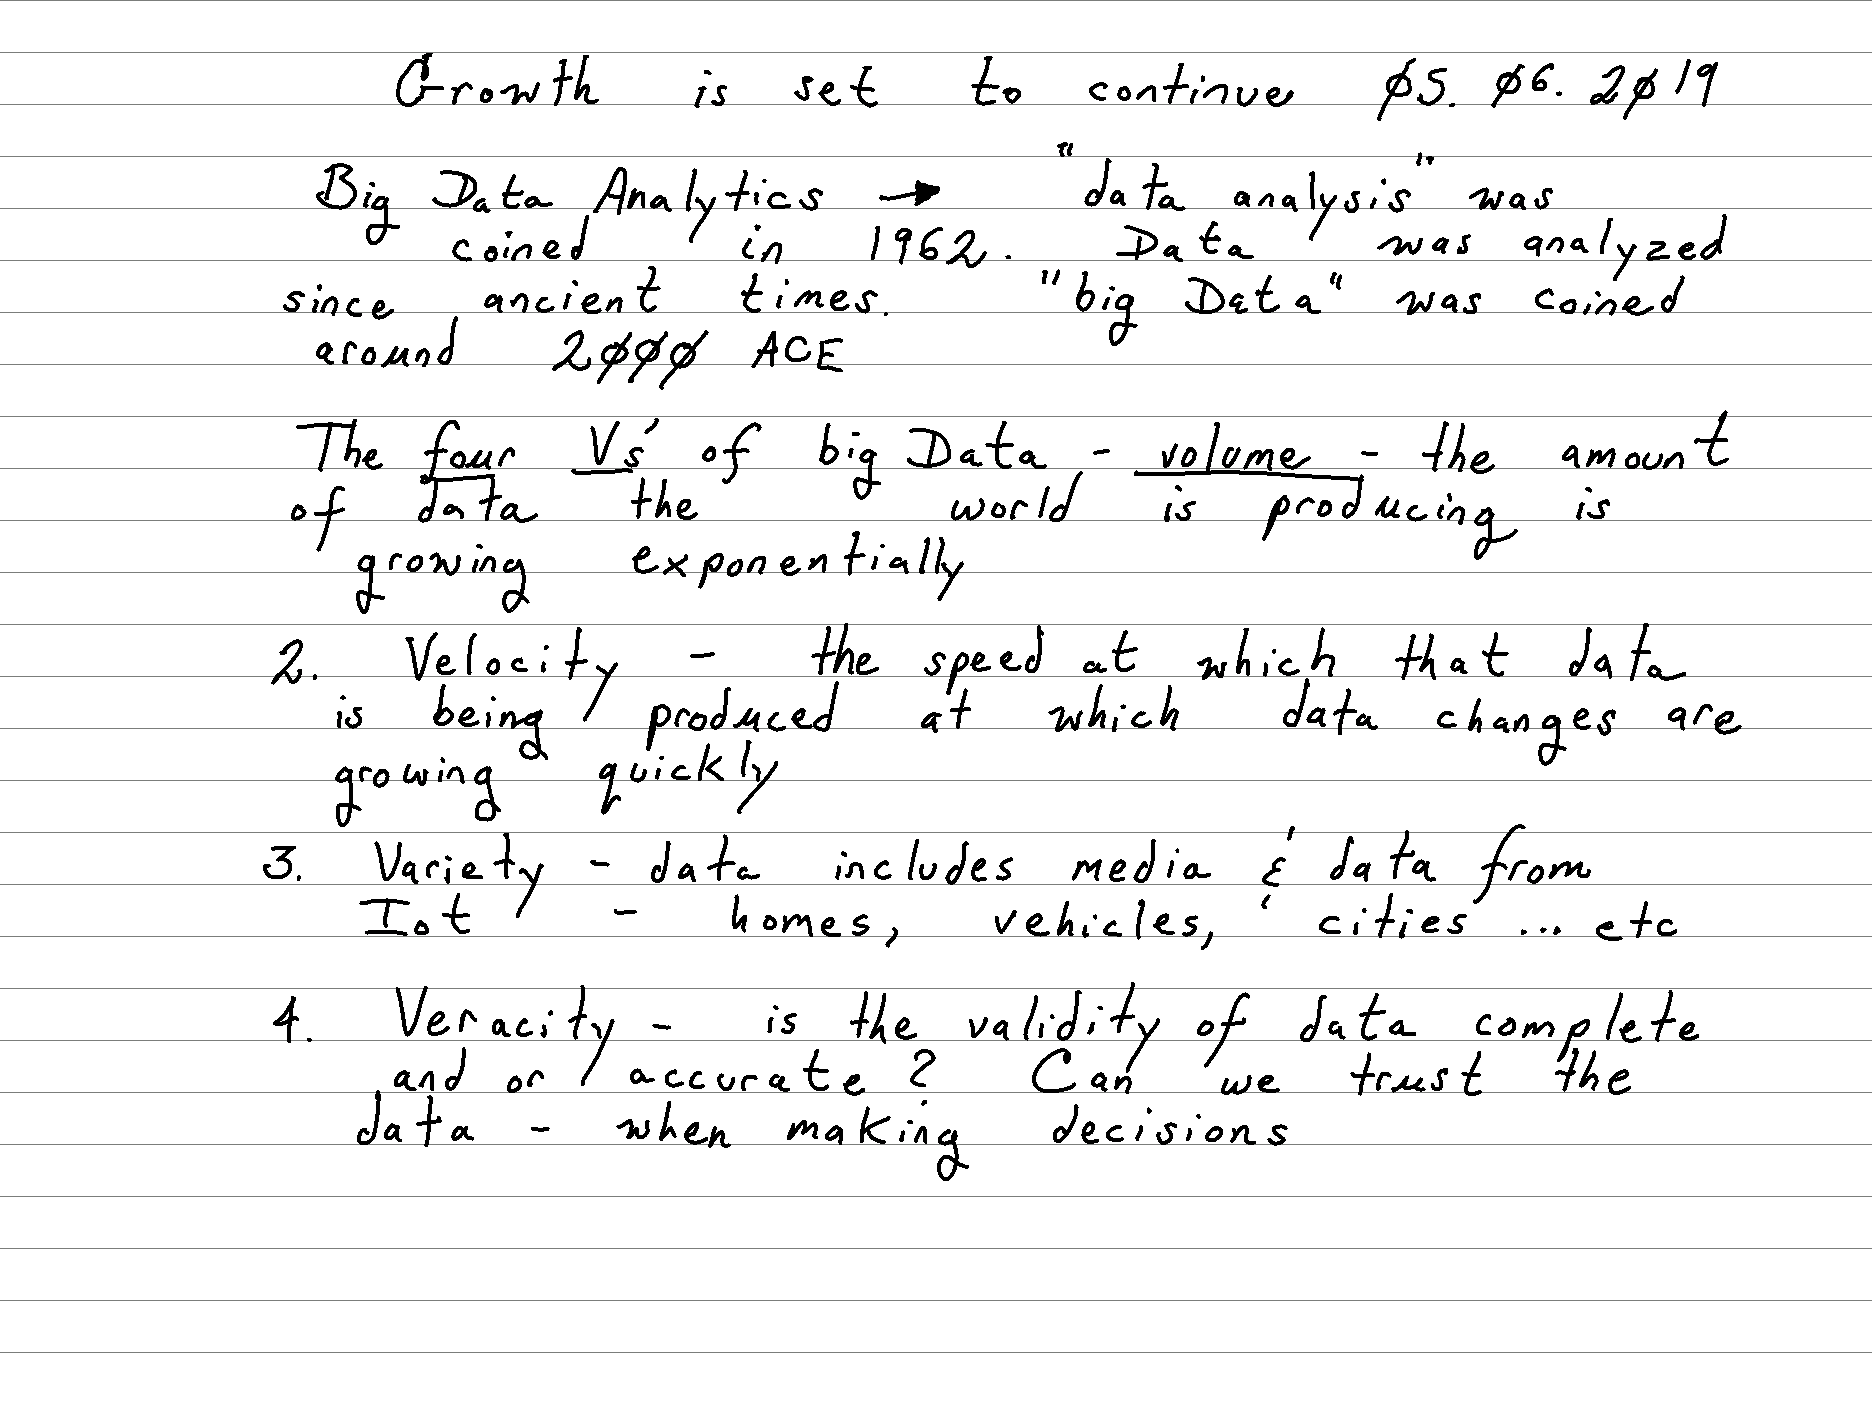 Growth is set to continue 05. 06. 2019
Big Data Analytics → "data analysis" was
coined in 1962. Data was analyzed
since ancient times. "big Data" was coined
around 2000 ACE
The four Vs' of big Data - volume - the amount
of data the world is producing is
growing exponentially
2. Velocity - the speed at which that data
is being produced at which data changes are
growing quickly
3. Variety - data includes media & data from
Iot - homes, vehicles, cities ... etc
4. Veracity - is the validity of data complete
and or accurate? Can we trust the
data - when making decisions